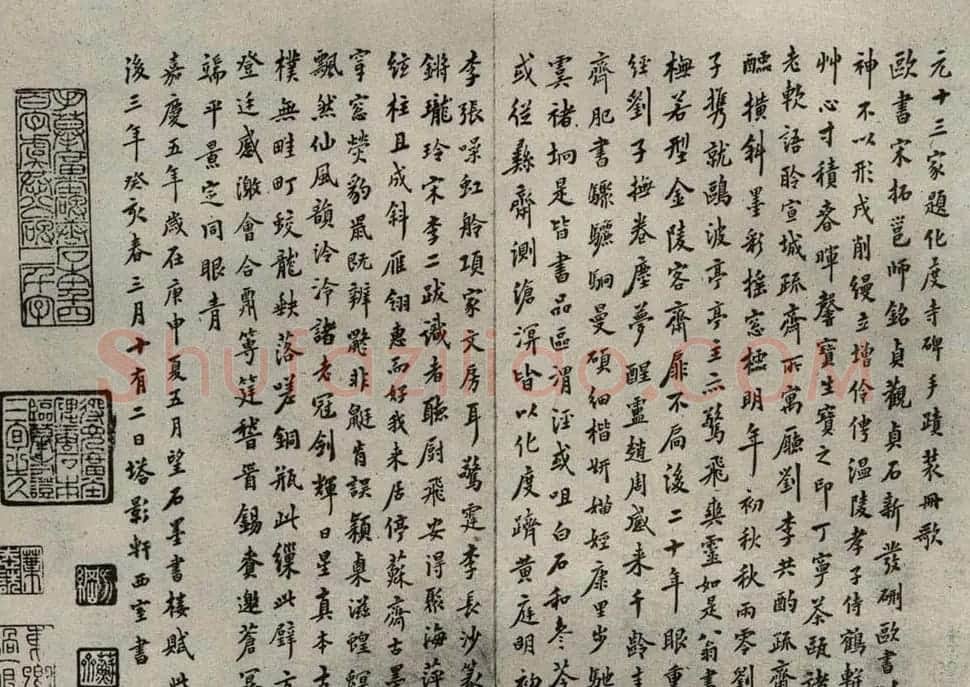 元十三家題化度寺碑手蹟裝冊歌
歐書宋拓邕師銘貞觀貞石新發硎歐書
神不以形戌削縵立增伶俜溫陵孝子侍鶴軿
艸心寸積春暉馨寶生寶之印丁寧茶甌諸
老軟語聆宣城疏齋所寓廳劉李共酌疏齋
醹橫斜墨彩搖窓櫺明年初秋秋雨零劉
子攜就鷗波亭亭主亦驚飛爽靈如是翁書
橅若型金陵客齋扉不扃後二十年眼重
經劉子撫卷塵夢醒盧趙周感来千齡
齊肥書驟驪駉曼碩細楷妍婧娙康里步馳
虞褚坰是皆書品區渭涇或咀白石和冬苓
或從彝齋測滄溟皆以化度躋黃庭明初
李張噪虹舲項家文房耳驚霆李長沙篆
鏘瓏玲宋李二跋識者聽尉飛安得聚海萍
絃柱且成斜雁翎惠而好我来居停蘇齋古墨
窂窓熒豹鼠既辨鼮非鼪肯誤潁臬滋蝗螟
飄然仙風韻泠泠諸老冠劍輝日星真本古
樸無畦町蛟龍缺落嗟銅瓶此纁此璧方
登廷感激會合鼎篿筳嵇晋錫賚邀蒼冥
端平景定同眼青
嘉慶五年歲在庚申夏五月望石墨書樓賦此
後三年癸亥春三月十有二日塔影軒西室書
Shufaziliao.com